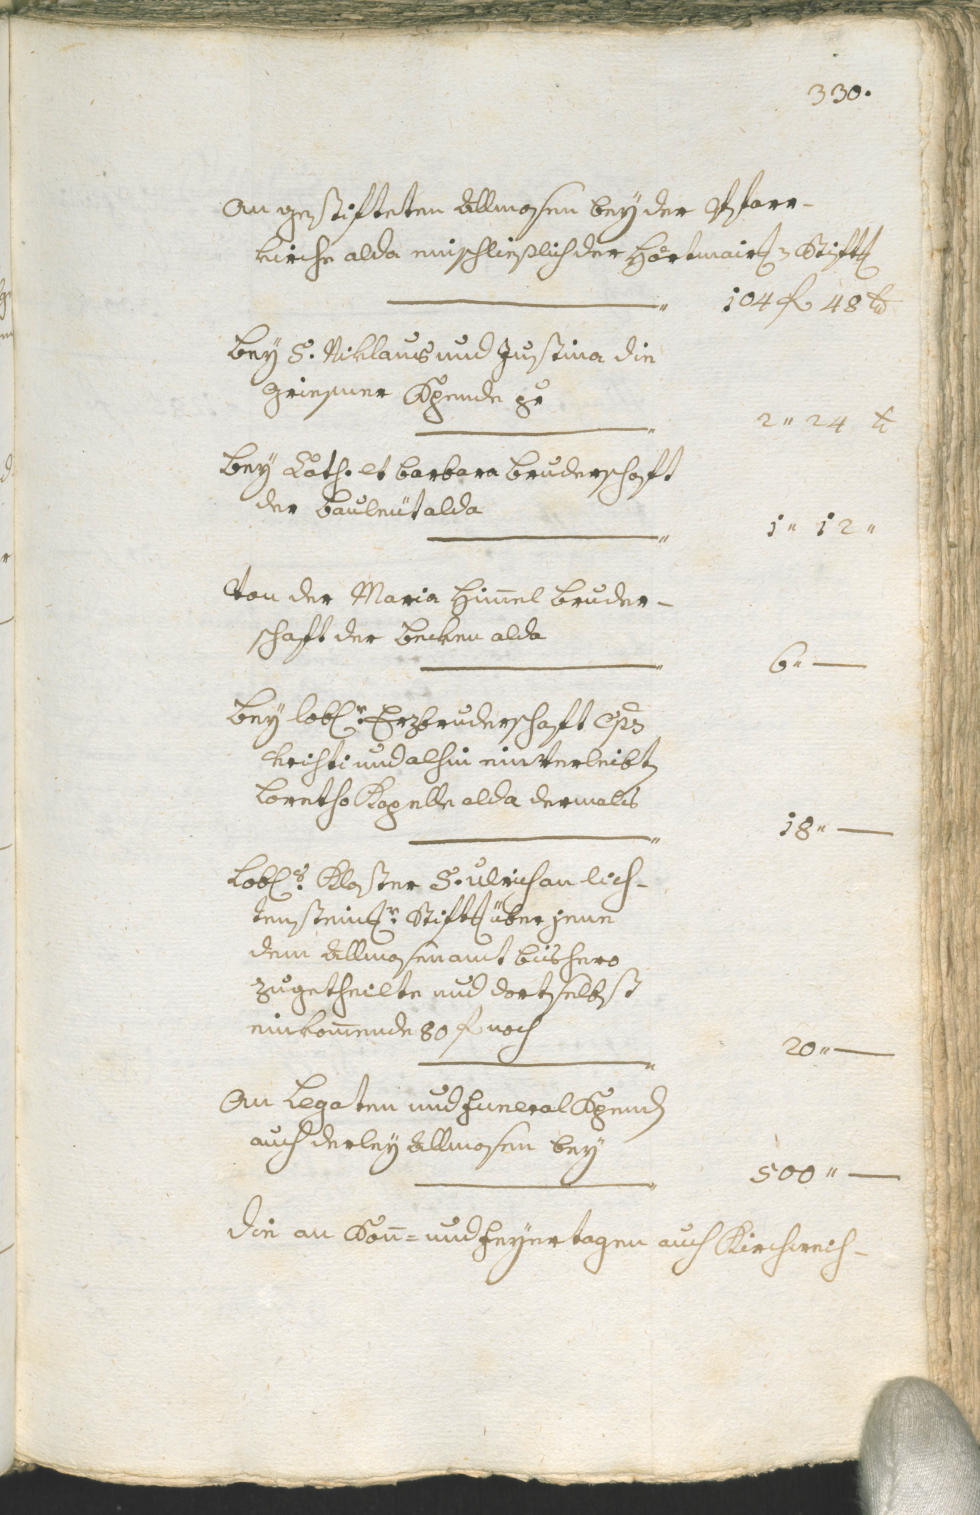 330.
An gestifteten Allmosen bey der Pfarr-
kirche alda einschließlich der Hörtmair 3 Stift
104 f 48 k
bey S. Niklaus und Justina die
Griesner Spende pr
2 " 24 k
bey Cath. et barbara bruderschaft
der bauleüt alda
1 " 12 "
Von der Maria Himel bruder-
schaft der becken alda
6 " —
bey lobl. Erzbruderschaft Cps
kristi und alhin einverleibt
Loretho Kapelle alda dermalß
18 " —
Lobl. Kloster S. ulrich an lich-
tenstein Stift über jene
dem Allmosenamt bishero
zugetheilte und dortselbst
einkomende 80 f noch
20 " —
An Legaten und funeral Spend
auch derley Allmosen bey
500 " —
Die an Son= und feyertagen auch Kirchweich-